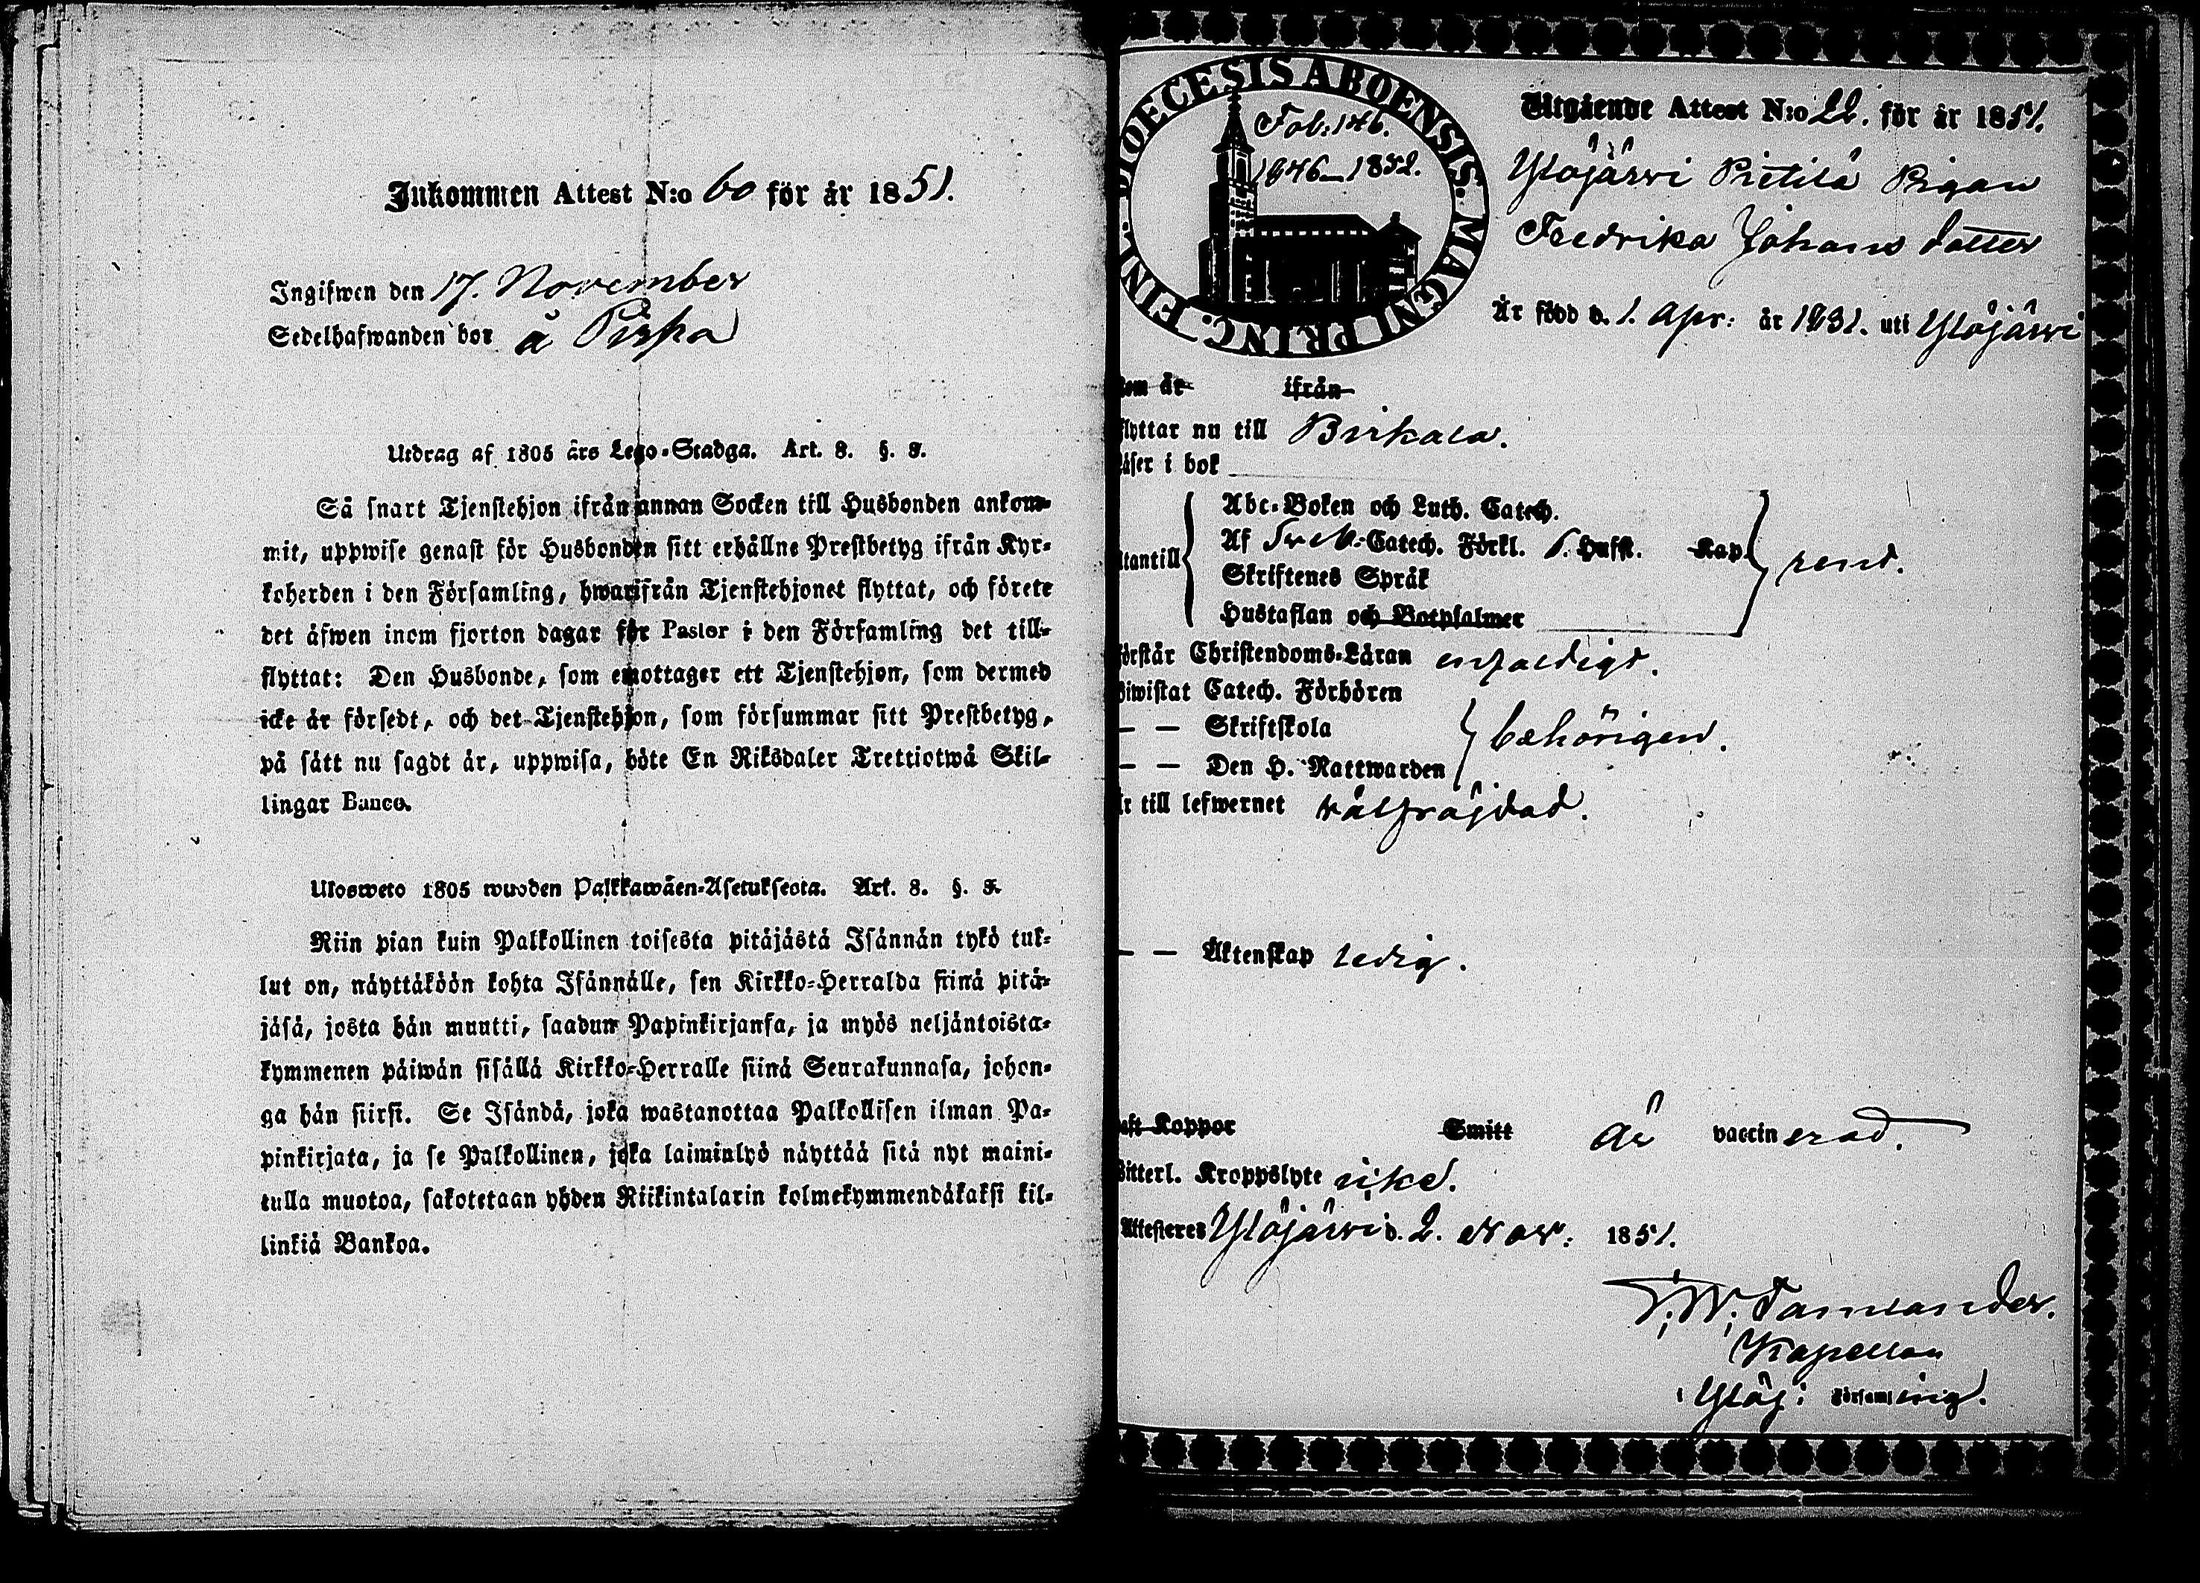 Inkommen Attest N:o 60 för år 1851.
Ingifwen den 17. November
Sedelhafwanden bor å Pirka
Utdrag af 1805 års Lego-Stadga. Art. 8. §. 8.
Så snart Tjenstehjon ifrån annan Socken till Husbonden ankom-
mit, uppwise genast för Husbonden sitt erhållne Prestbetyg ifrån Kyr-
koherden i den Församling, hwarifrån Tjenstehjonet flyttat, och förete
det äfwen inom fjorton dagar för Pastor i den Församling det till-
flyttat: Den Husbonde, som emottager ett Tjenstehjon, som dermed
icke är försedt, och det Tjenstehjon, som försummar sitt Prestbetyg,
på sätt nu sagdt är, uppwisa, böte En Riksdaler Trettiotwå Skil-
lingar Banco.
Ulosweto 1805 wuoden Palkkawäen-Asetuksesta. Art. 8. §. 8.
Niin pian kuin Palkollinen toisesta pitäjästä Isännän tykö tul-
lut on, näyttäköön kohta Isännälle, sen Kirkko-Herralda siinä pitä-
jäsä, josta hän muutti, saadun Papinkirjansa, ja myös neljäntoista-
kymmenen päiwän sisällä Kirkko-Herralle siinä Seurakunnasa, johon-
ga hän siirsi. Se Isändä, joka wastanottaa Palkollisen ilman Pa-
pinkirjata, ja se Palkollinen, joka laiminlyö näyttää sitä nyt maini-
tulla muotoa, sakotetaan yhden Riikintalarin kolmekymmendäkaksi kil-
linkiä Bankoa.
DIOECESIS ABOENSIS. MAGNI PRINC. FINL.
Fol: 146.
1846–1852.
Utgående Attest N:o 22. för år 1851.
Ylöjärvi Pietilä Pigan
Fredrika Johans dotter
Är född d. 1. Apr: år 1831. uti Ylöjärvi
som är ifrån
flyttar nu till Birkala.
läser i bok
utantill
Abc-Boken och Luth. Catech.
Af Catech. Förkl. Husst. Kap.
Skriftenes Språk
Hustaflan och Botpsalmer
rent.
förstår Christendoms-Läran enfaldigt.
Biwistat Catech. Förhören
— — Skriftskola
— — Den H. Nattwarden
behörigen.
Är till lefwernet välfräjdad.
— — Äktenskap ledig.
haft Koppor Smitt är vaccinerad.
Witterl. Kroppslyte icke.
Attesteres Ylöjärvi d. 2. Nov: 1851.
Kapellan
i Ylöj: församling.